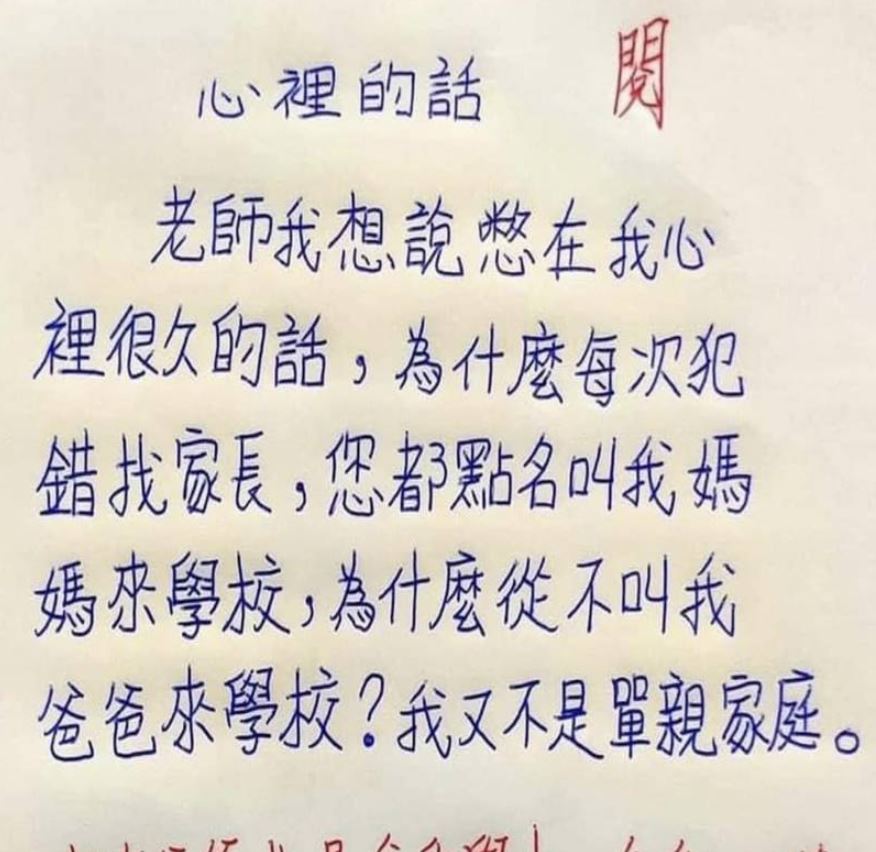 心裡的話 閱
老師我想說憋在我心
裡很久的話，為什麼每次犯
錯找家長，您都點名叫我媽
媽來學校，為什麼從不叫我
爸爸來學校？我又不是單親家庭。